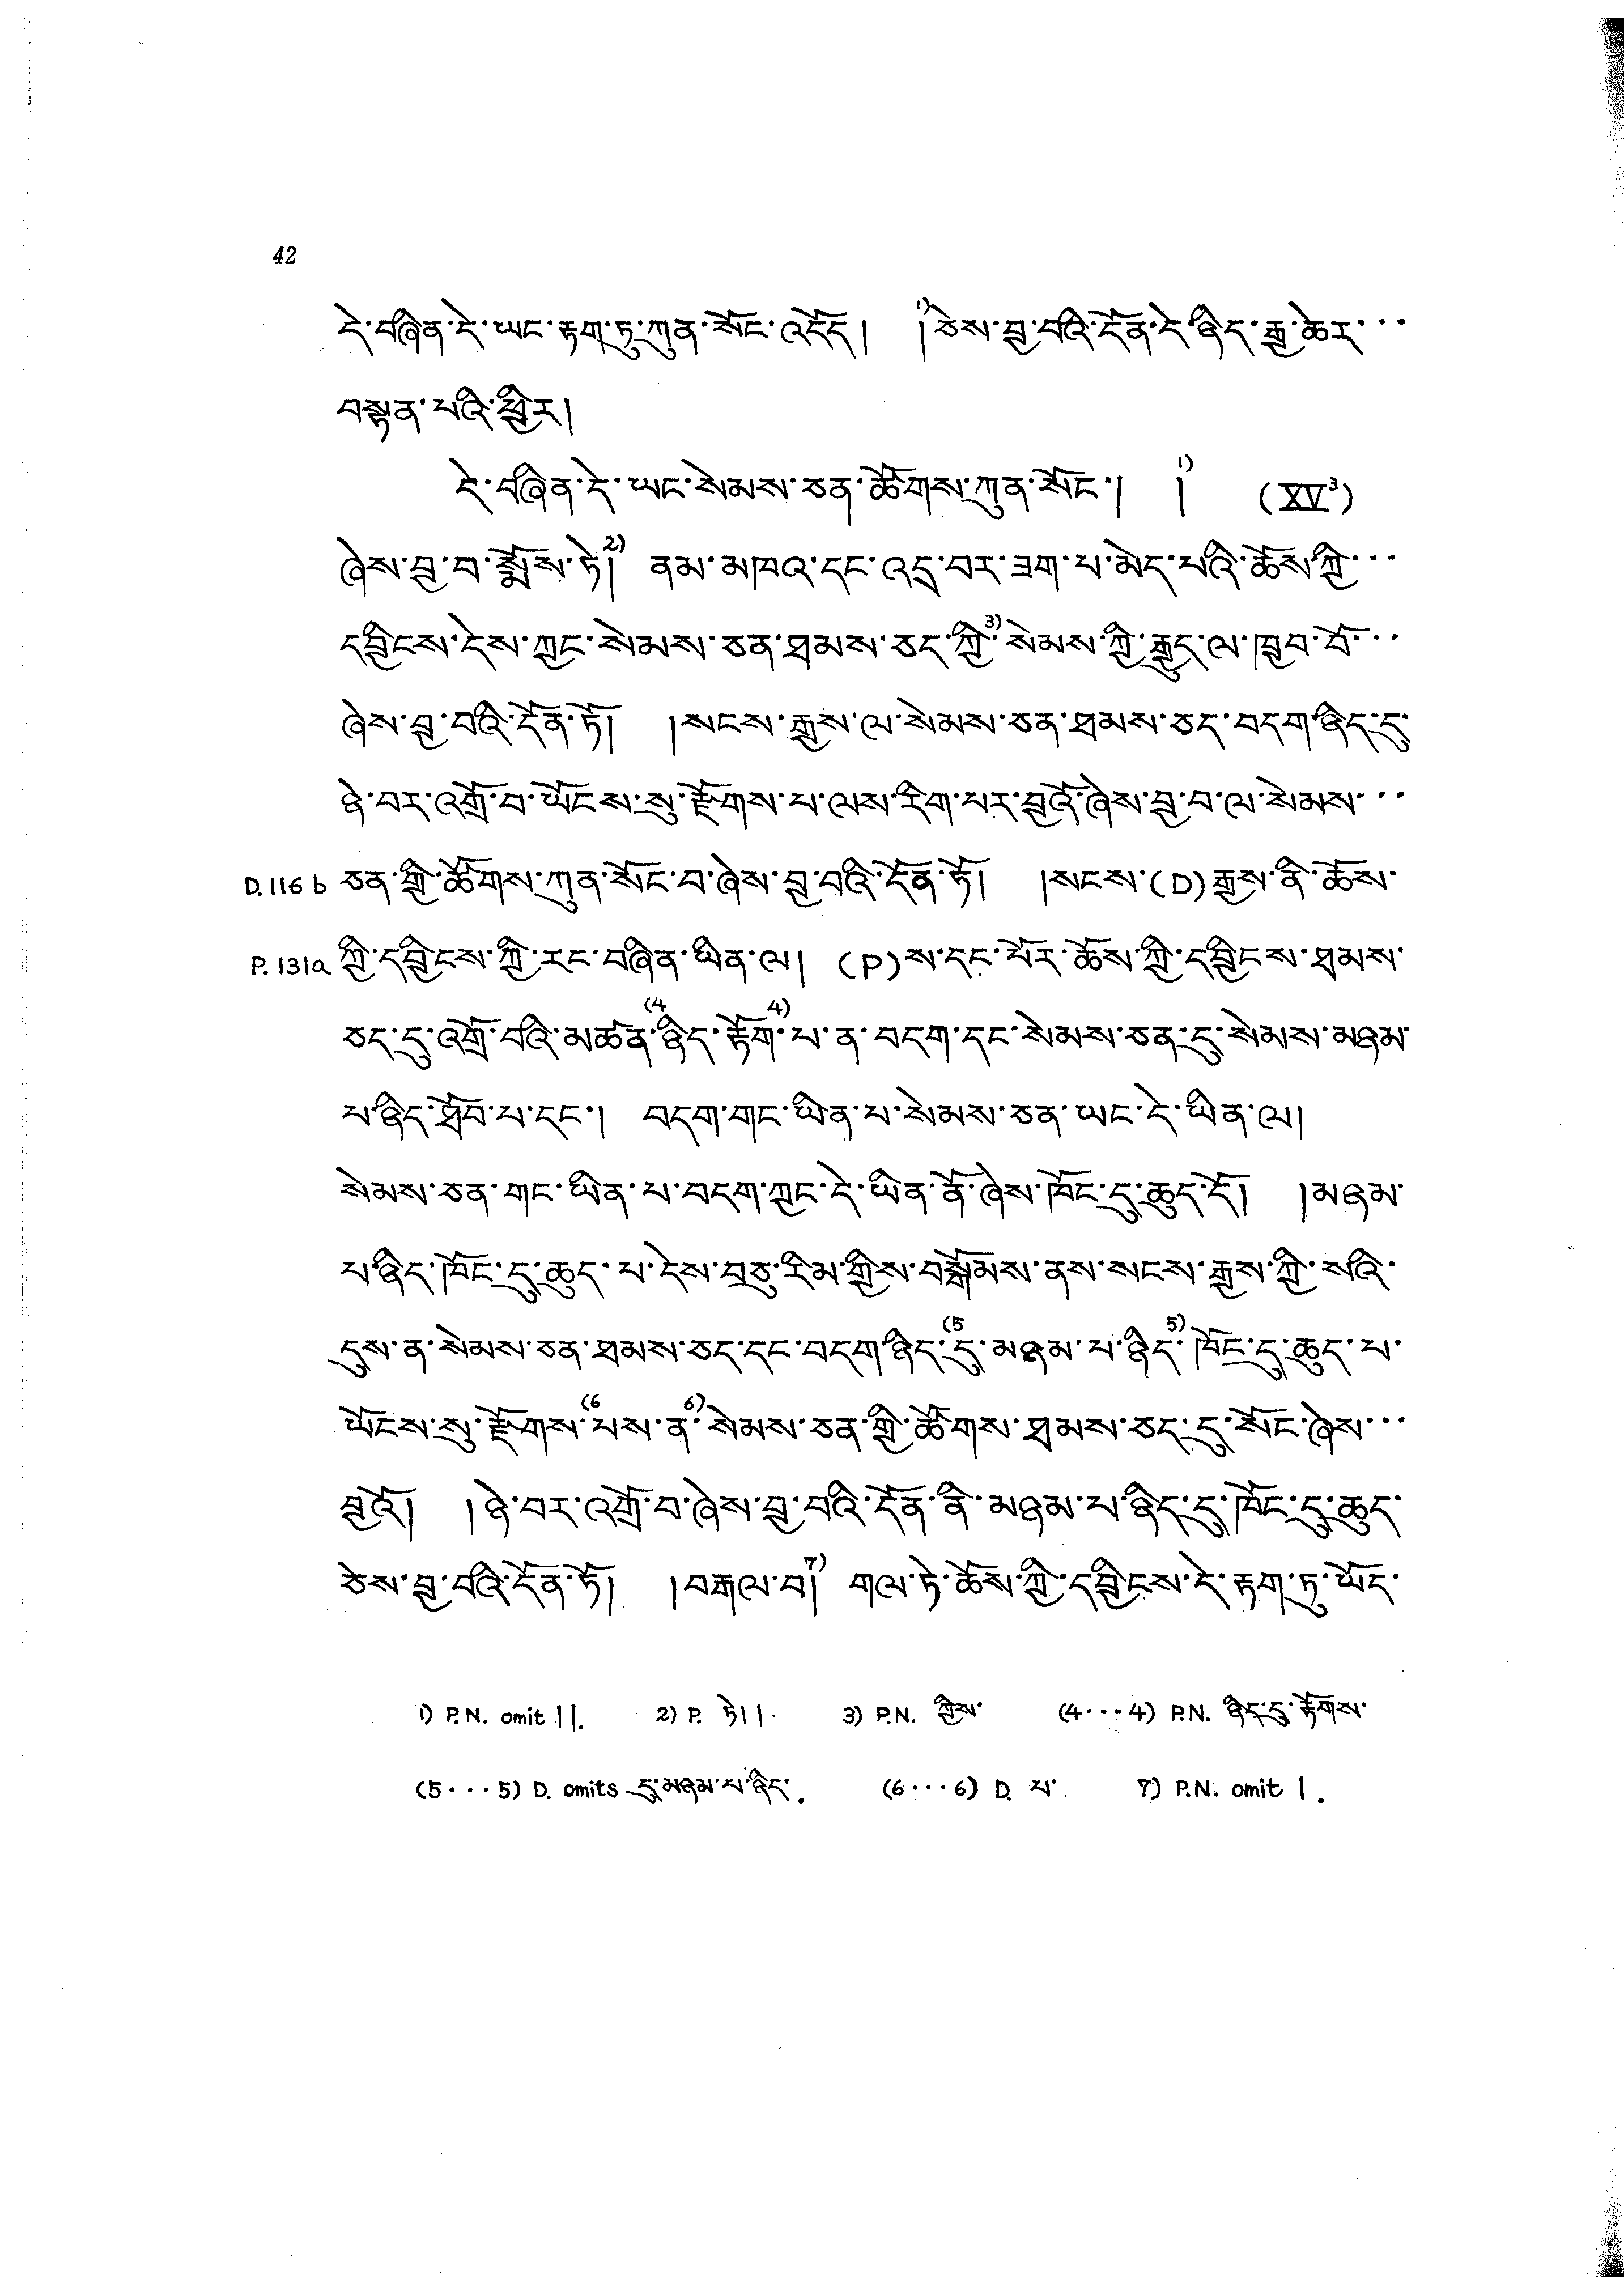 42
དེ་བཞིན་དེ་ཡང་རྟག་ཏུ་ཀུན་སོང་འདོད། །¹⁾ཅེས་བྱ་བའི་དོན་དེ་ཉིད་རྒྱ་ཆེར་···
བསྟན་པའི་ཕྱིར།
དེ་བཞིན་དེ་ཡང་སེམས་ཅན་ཚོགས་ཀུན་སོང་། །¹⁾ (XV³)
ཞེས་བྱ་བ་སྨོས་ཏེ།²⁾ ནམ་མཁའ་དང་འདྲ་བར་ཟག་པ་མེད་པའི་ཆོས་ཀྱི་···
དབྱིངས་དེས་ཀྱང་སེམས་ཅན་ཐམས་ཅད་ཀྱི³⁾་སེམས་ཀྱི་རྒྱུད་ལ་ཁྱབ་བོ་···
ཞེས་བྱ་བའི་དོན་ཏོ། །སངས་རྒྱས་ལ་སེམས་ཅན་ཐམས་ཅད་བདག་ཉིད་དུ་
ཉེ་བར་འགྲོ་བ་ཡོངས་སུ་རྫོགས་པ་ལས་རིག་པར་བྱའོ་ཞེས་བྱ་བ་ལ་སེམས་···
D.116b ཅན་གྱི་ཚོགས་ཀུན་སོང་བ་ཞེས་བྱ་བའི་དོན་ཏོ། །སངས་(D)རྒྱས་ནི་ཆོས་
P.131a ཀྱི་དབྱིངས་ཀྱི་རང་བཞིན་ཡིན་ལ། (P)ས་དང་པོར་ཆོས་ཀྱི་དབྱིངས་ཐམས་
ཅད་དུ་འགྲོ་བའི་མཚན་⁽⁴ཉིད་རྟོག་⁴⁾པ་ན་བདག་དང་སེམས་ཅན་དུ་སེམས་མཉམ་
པ་ཉིད་ཐོབ་པ་དང་། བདག་གང་ཡིན་པ་སེམས་ཅན་ཡང་དེ་ཡིན་ལ།
སེམས་ཅན་གང་ཡིན་པ་བདག་ཀྱང་དེ་ཡིན་ནོ་ཞེས་ཁོང་དུ་ཆུད་དོ། །མཉམ་
པ་ཉིད་ཁོང་དུ་ཆུད་པ་དེས་བཅུ་རིམ་གྱིས་བསྒོམས་ནས་སངས་རྒྱས་ཀྱི་སའི་
དུས་ན་སེམས་ཅན་ཐམས་ཅད་དང་བདག་ཉིད་⁽⁵དུ་མཉམ་པ་ཉིད་⁵⁾ཁོང་དུ་ཆུད་པ་
ཡོངས་སུ་རྫོགས་⁽⁶པས་ན་⁶⁾སེམས་ཅན་གྱི་ཚོགས་ཐམས་ཅད་དུ་སོང་ཞེས་···
བྱའོ། །ཉེ་བར་འགྲོ་བ་ཞེས་བྱ་བའི་དོན་ནི་མཉམ་པ་ཉིད་དུ་ཁོང་དུ་ཆུད་
ཅེས་བྱ་བའི་དོན་ཏོ། །བརྒལ་བ།⁷⁾ གལ་ཏེ་ཆོས་ཀྱི་དབྱིངས་དེ་རྟག་ཏུ་ཡོད་
1) P.N. omit །།. 2) P. ཏེ།།. 3) P.N. ཀྱིས་ (4···4) P.N. ཉིད་དུ་རྟོགས་
(5···5) D. omits དུ་མཉམ་པ་ཉིད་. (6···6) D. པ་ 7) P.N. omit །.